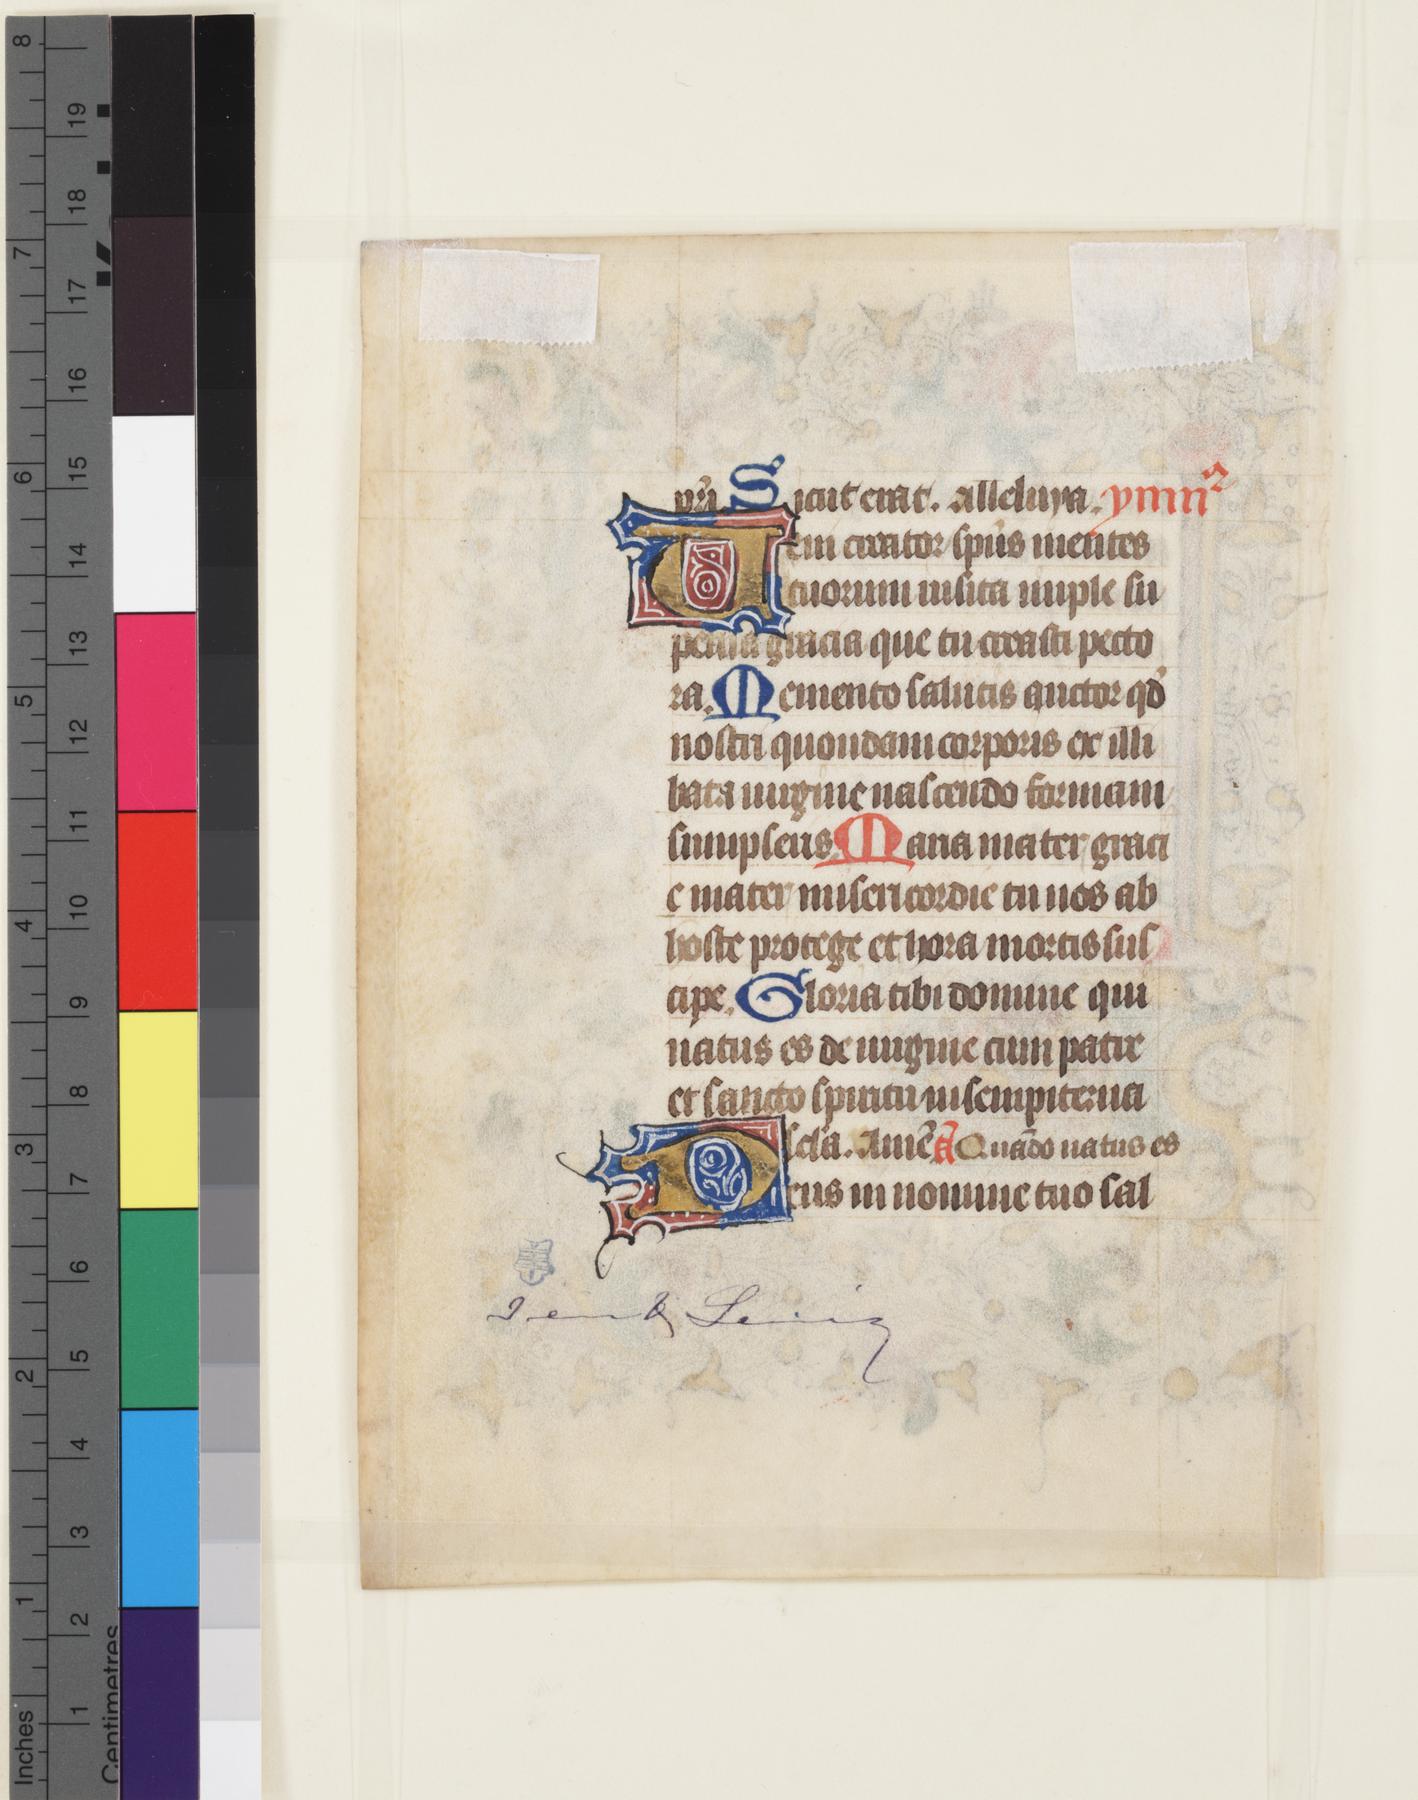 pr̄i. Sicut erat. alleluya. ymn⁹
Veni creator sp̄us mentes
tuorum visita imple su
perna gracia que tu creasti pecto
ra. Memento salutis auctor qd̄
nostri quondam corporis ex illi
bata uirgine nascendo formam
sumpseris Maria mater graci
e mater misericordie tu nos ab
hoste protege et hora mortis sus
cipe. Gloria tibi domine qui
natus es de uirgine cum patre
et sancto spiritu in sempiterna
sc̄la. Amē ā Quādo natus es
Deus in nomine tuo sal
8
7
6
5
4
3
2
1
Inches
19
18
17
16
15
14
13
12
11
10
9
8
7
6
5
4
3
2
1
Centimetres